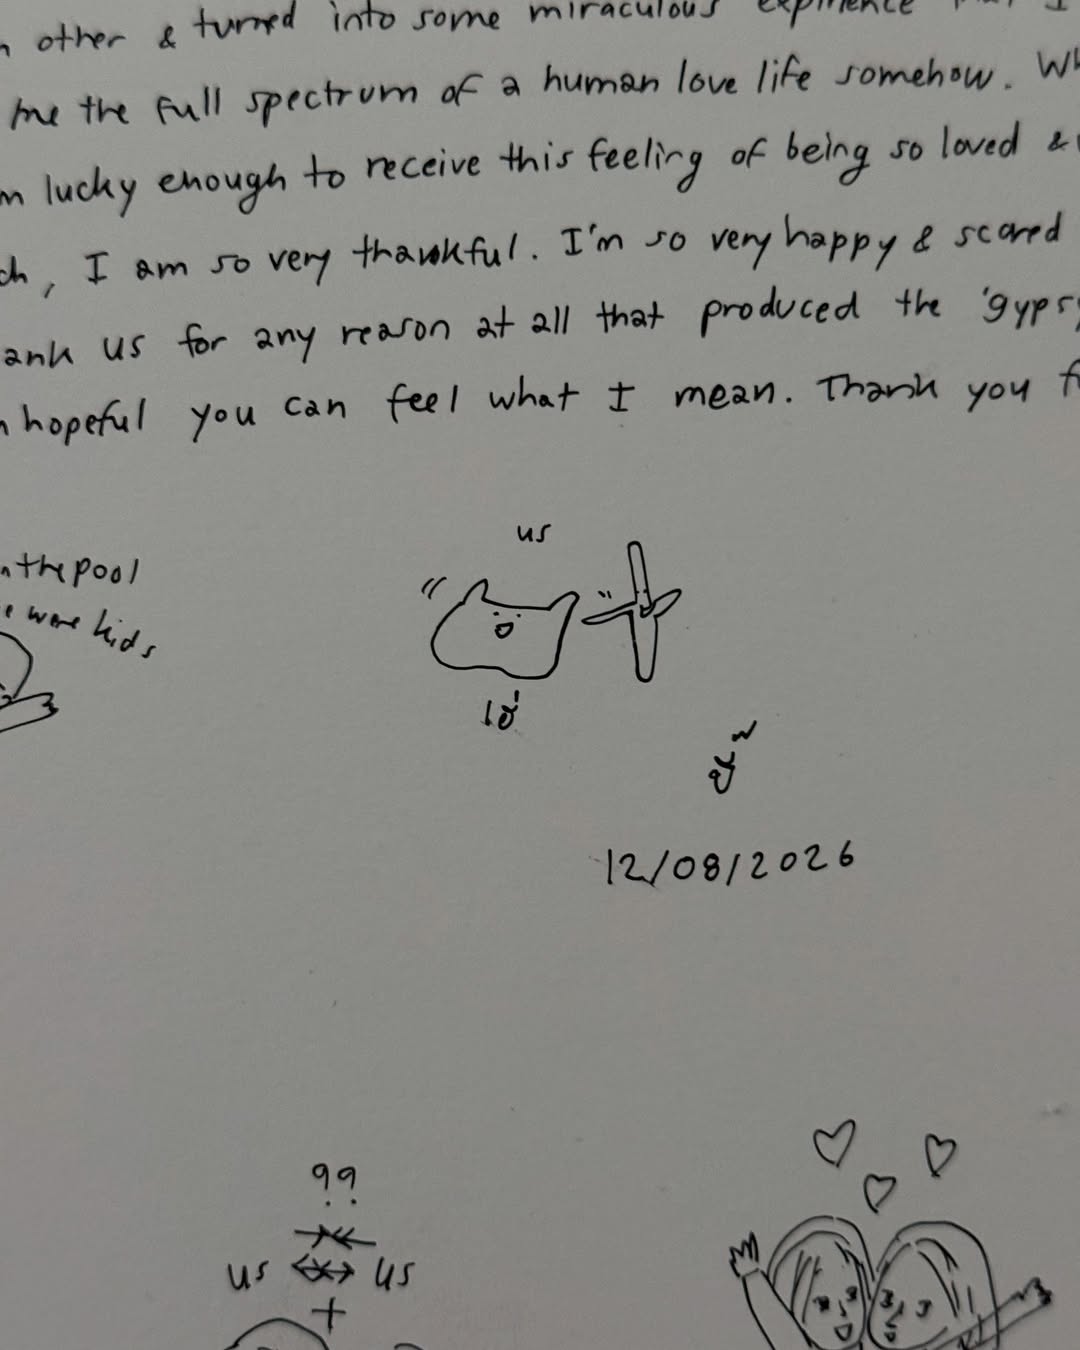 other & turned into some miraculous expirience
me the full spectrum of a human love life somehow.
lucky enough to receive this feeling of being so loved &
, I am so very thankful. I'm so very happy & scared
us for any reason at all that produced the 'gypsy
hopeful you can feel what I mean. Thank you
us
the pool
were kids
12/08/2026
??
us us
+